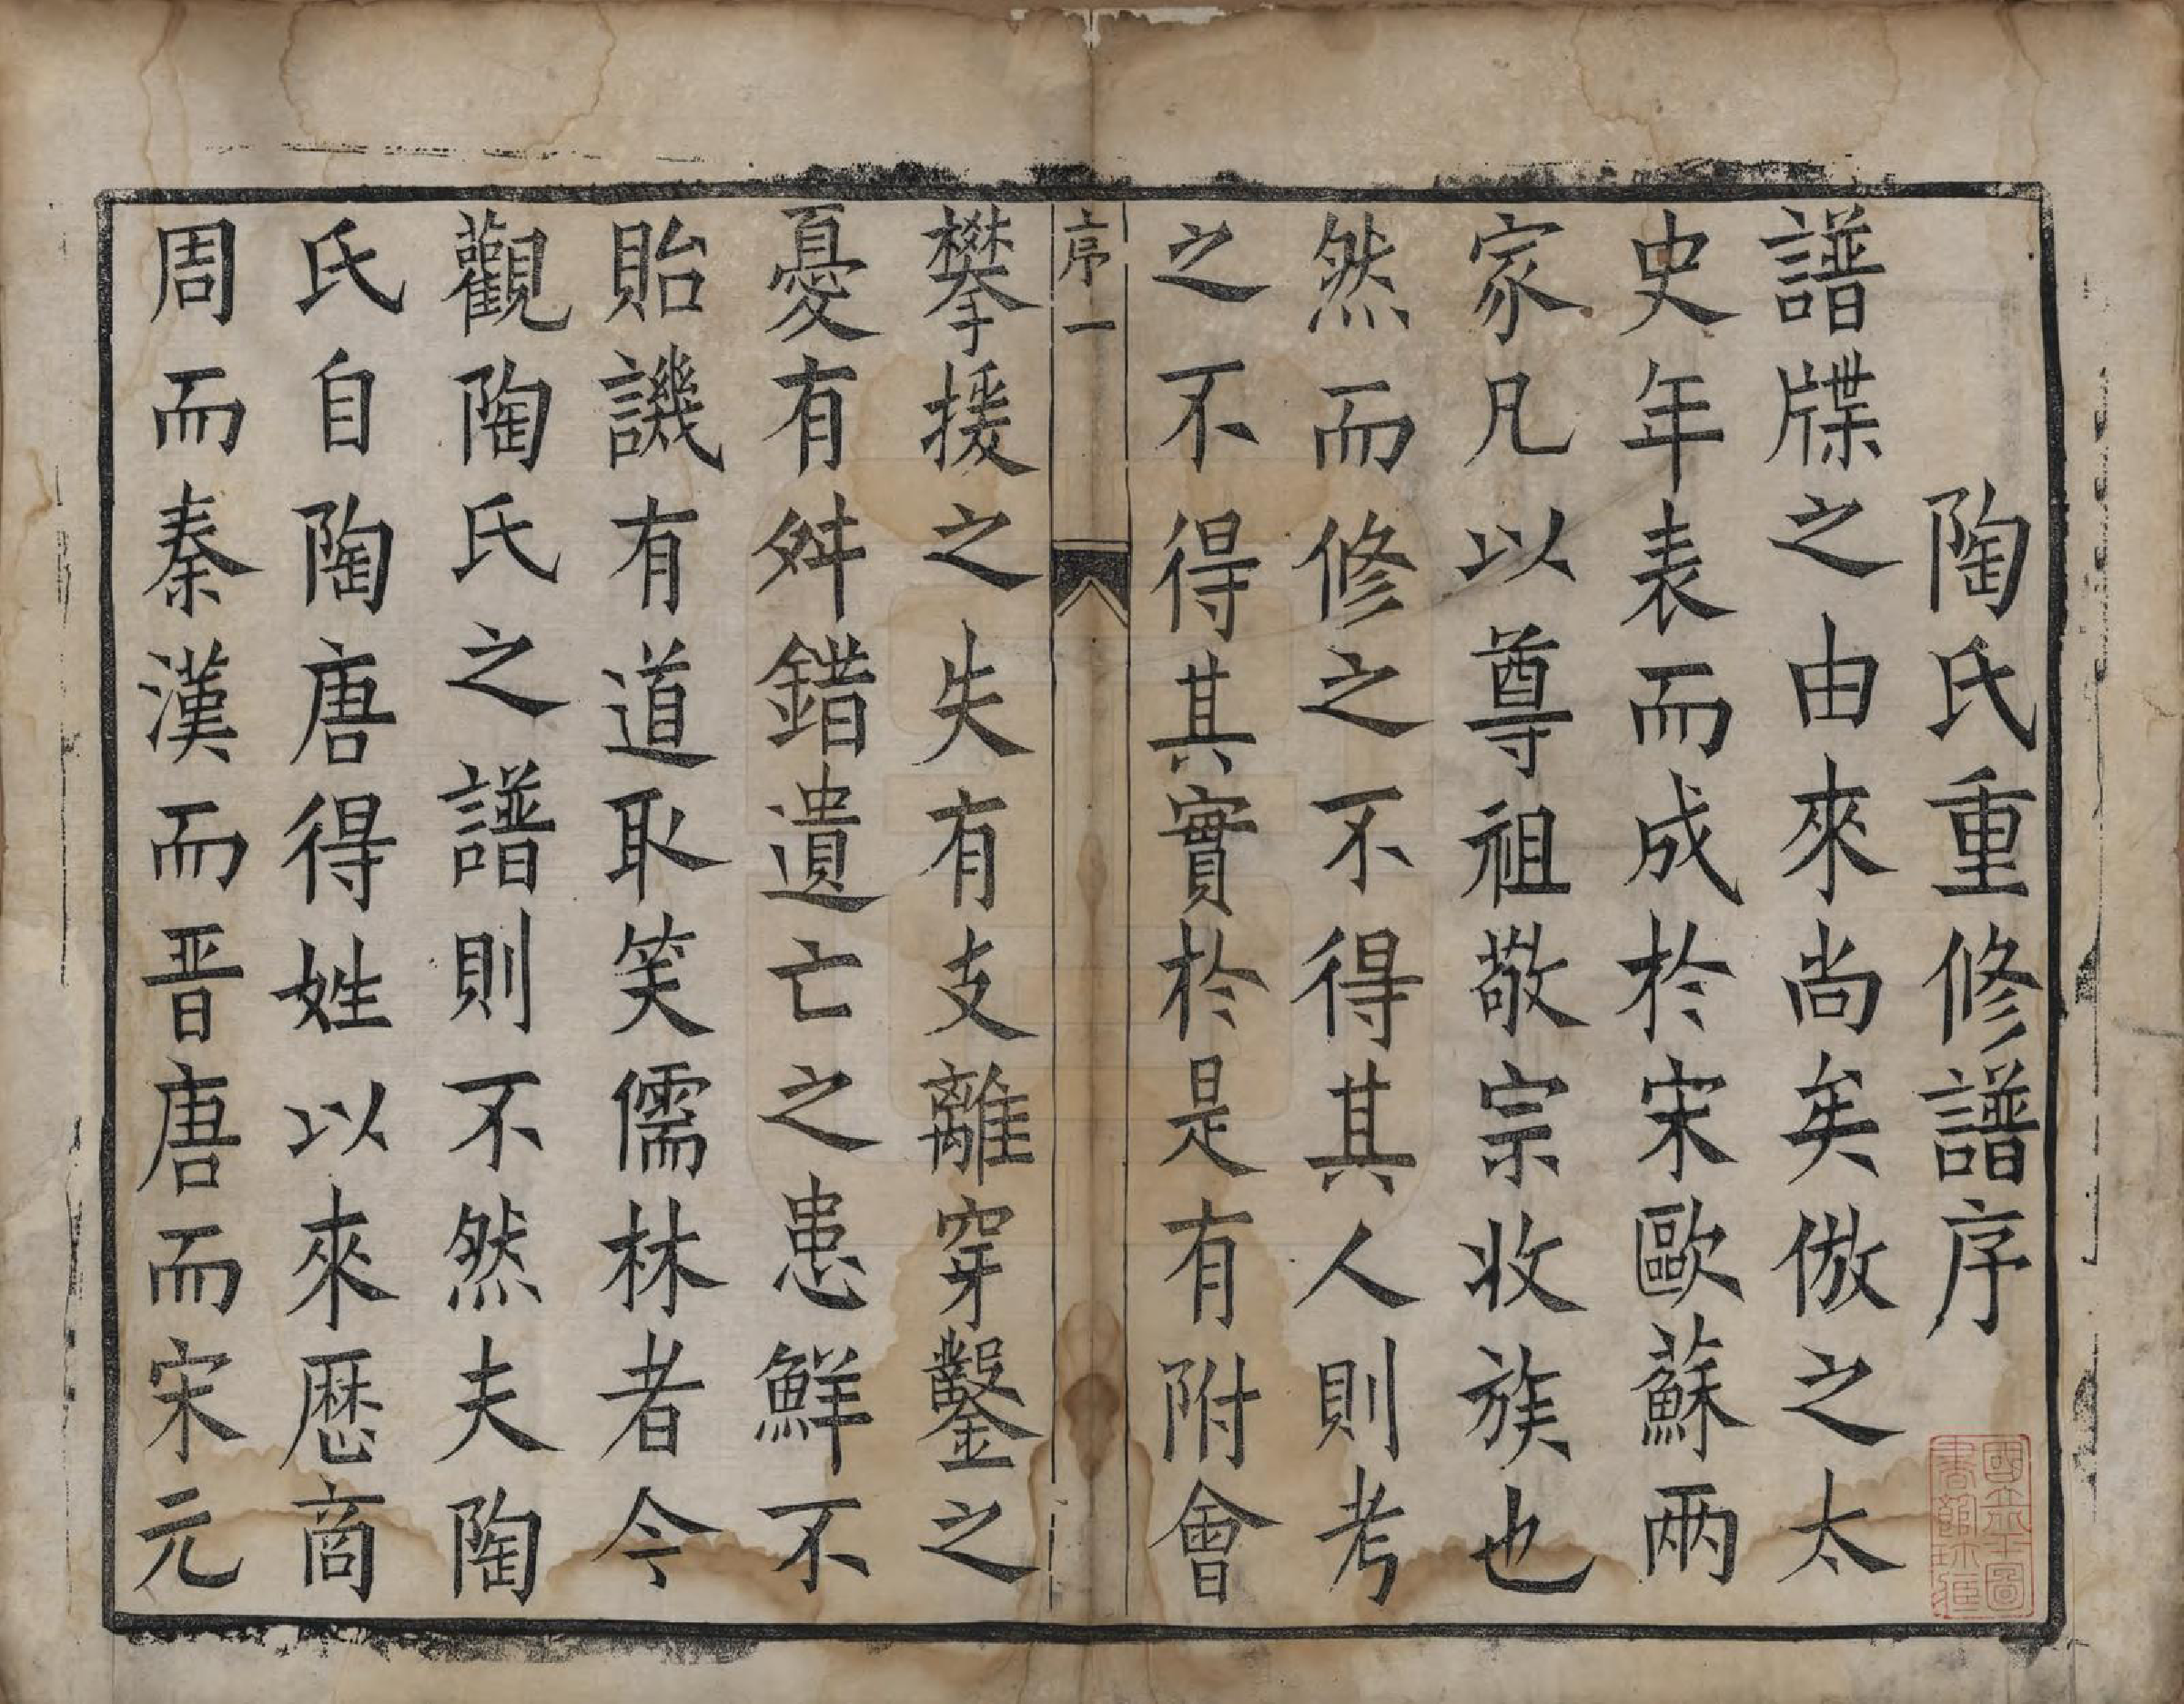 陶氏重修譜序
譜牒之由來尚矣倣之太
史年表而成於宋歐蘇兩
家凡以尊祖敬宗收族也
然而修之不得其人則考
之不得其實於是有附會
序一
攀援之失有支離穿鑿之
憂有舛錯遺亡之患鮮不
貽譏有道取笑儒林者今
觀陶氏之譜則不然夫陶
氏自陶唐得姓以來歷商
周而秦漢而晋唐而宋元
國立北平圖
書館珍藏